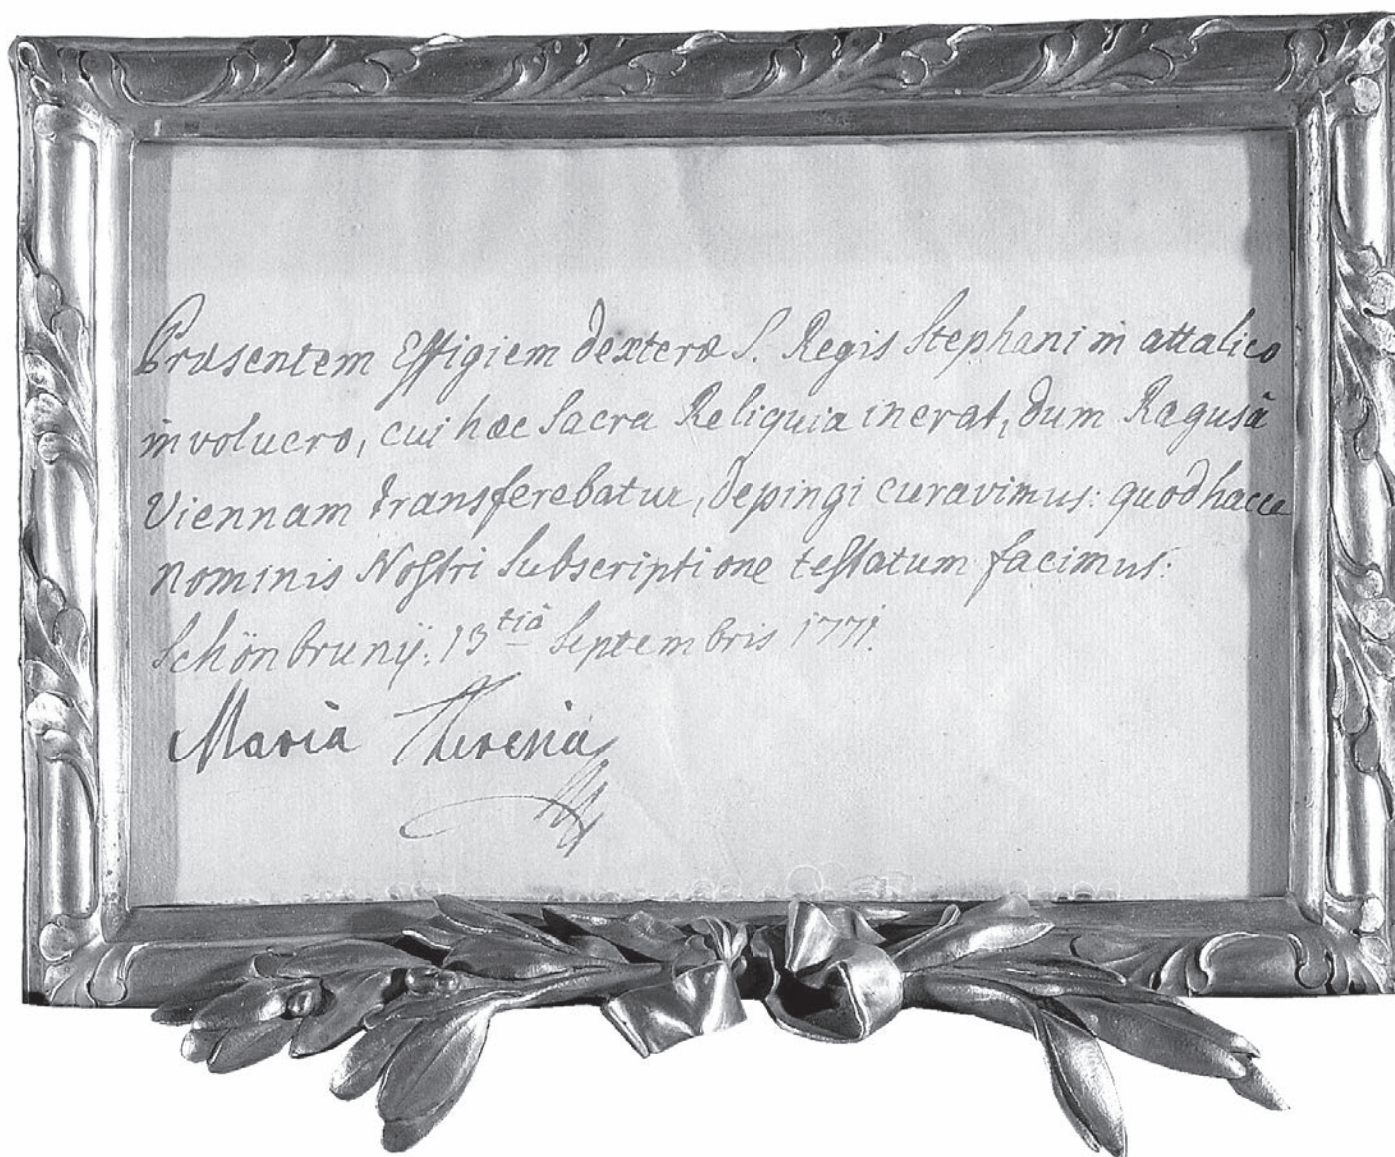 Præsentem Effigiem dexteræ S. Regis Stephani in attalico
involucro, cui hæc Sacra Reliquia inerat, dum Ragusâ
Viennam transferebatur, depingi curavimus: quod hacce
nominis Nostri Subscriptione testatum facimus:
Schönbrunÿ: 13tiâ Septembris 1771.
Maria Theresia